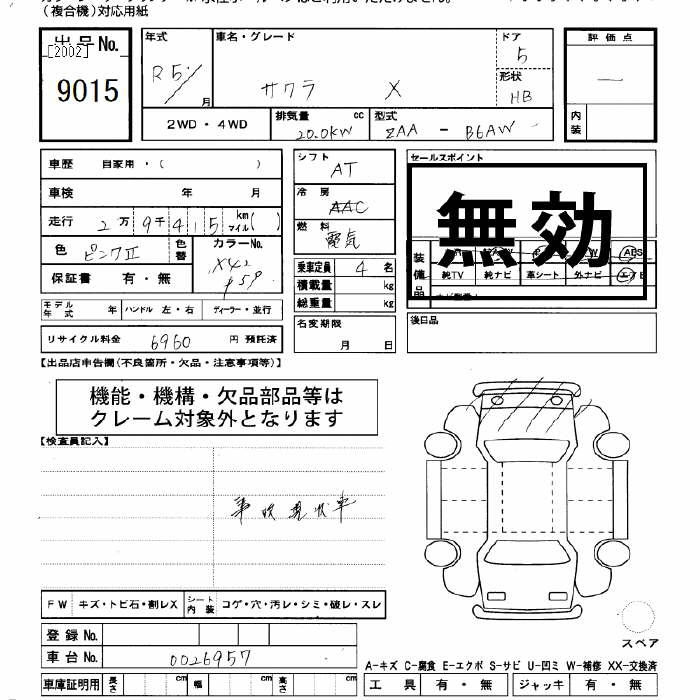 (複合機)対応用紙
出品No.
[2002]
9015
年式
R5/
月
車名・グレード
サクラ X
ドア
5
形状
HB
評価点
―
内装
2WD・4WD
排気量 cc
20.0KW
型式
ZAA - B6AW
車歴 自家用・( )
車検 年 月
走行 2万9千415 km マイル( )
色 ピンクII
色替
カラーNo.
XK2
¢59
保証書 有・無
モデル年式 年 ハンドル 左・右 ディーラー・並行
リサイクル料金 6960 円 預託済
シフト
AT
冷房
AAC
燃料
電気
乗車定員 4 名
積載量 kg
総重量 kg
名変期限
月 日
セールスポイント
無効
装備品
純TV 純ナビ 革シート 外ナビ エアB
ABS
後日品
【出品店申告欄(不良箇所・欠品・注意事項等)】
機能・機構・欠品部品等は
クレーム対象外となります
【検査員記入】
事故現状車
FW キズ・トビ石・割レX シート内装 コゲ・穴・汚レ・シミ・破レ・スレ
登録No.
車台No. 0026957
車庫証明用 長さ cm 幅 cm 高さ cm
スペア
A-キズ C-腐食 E-エクボ S-サビ U-凹ミ W-補修 XX-交換済
工具 有・無 ジャッキ 有・無